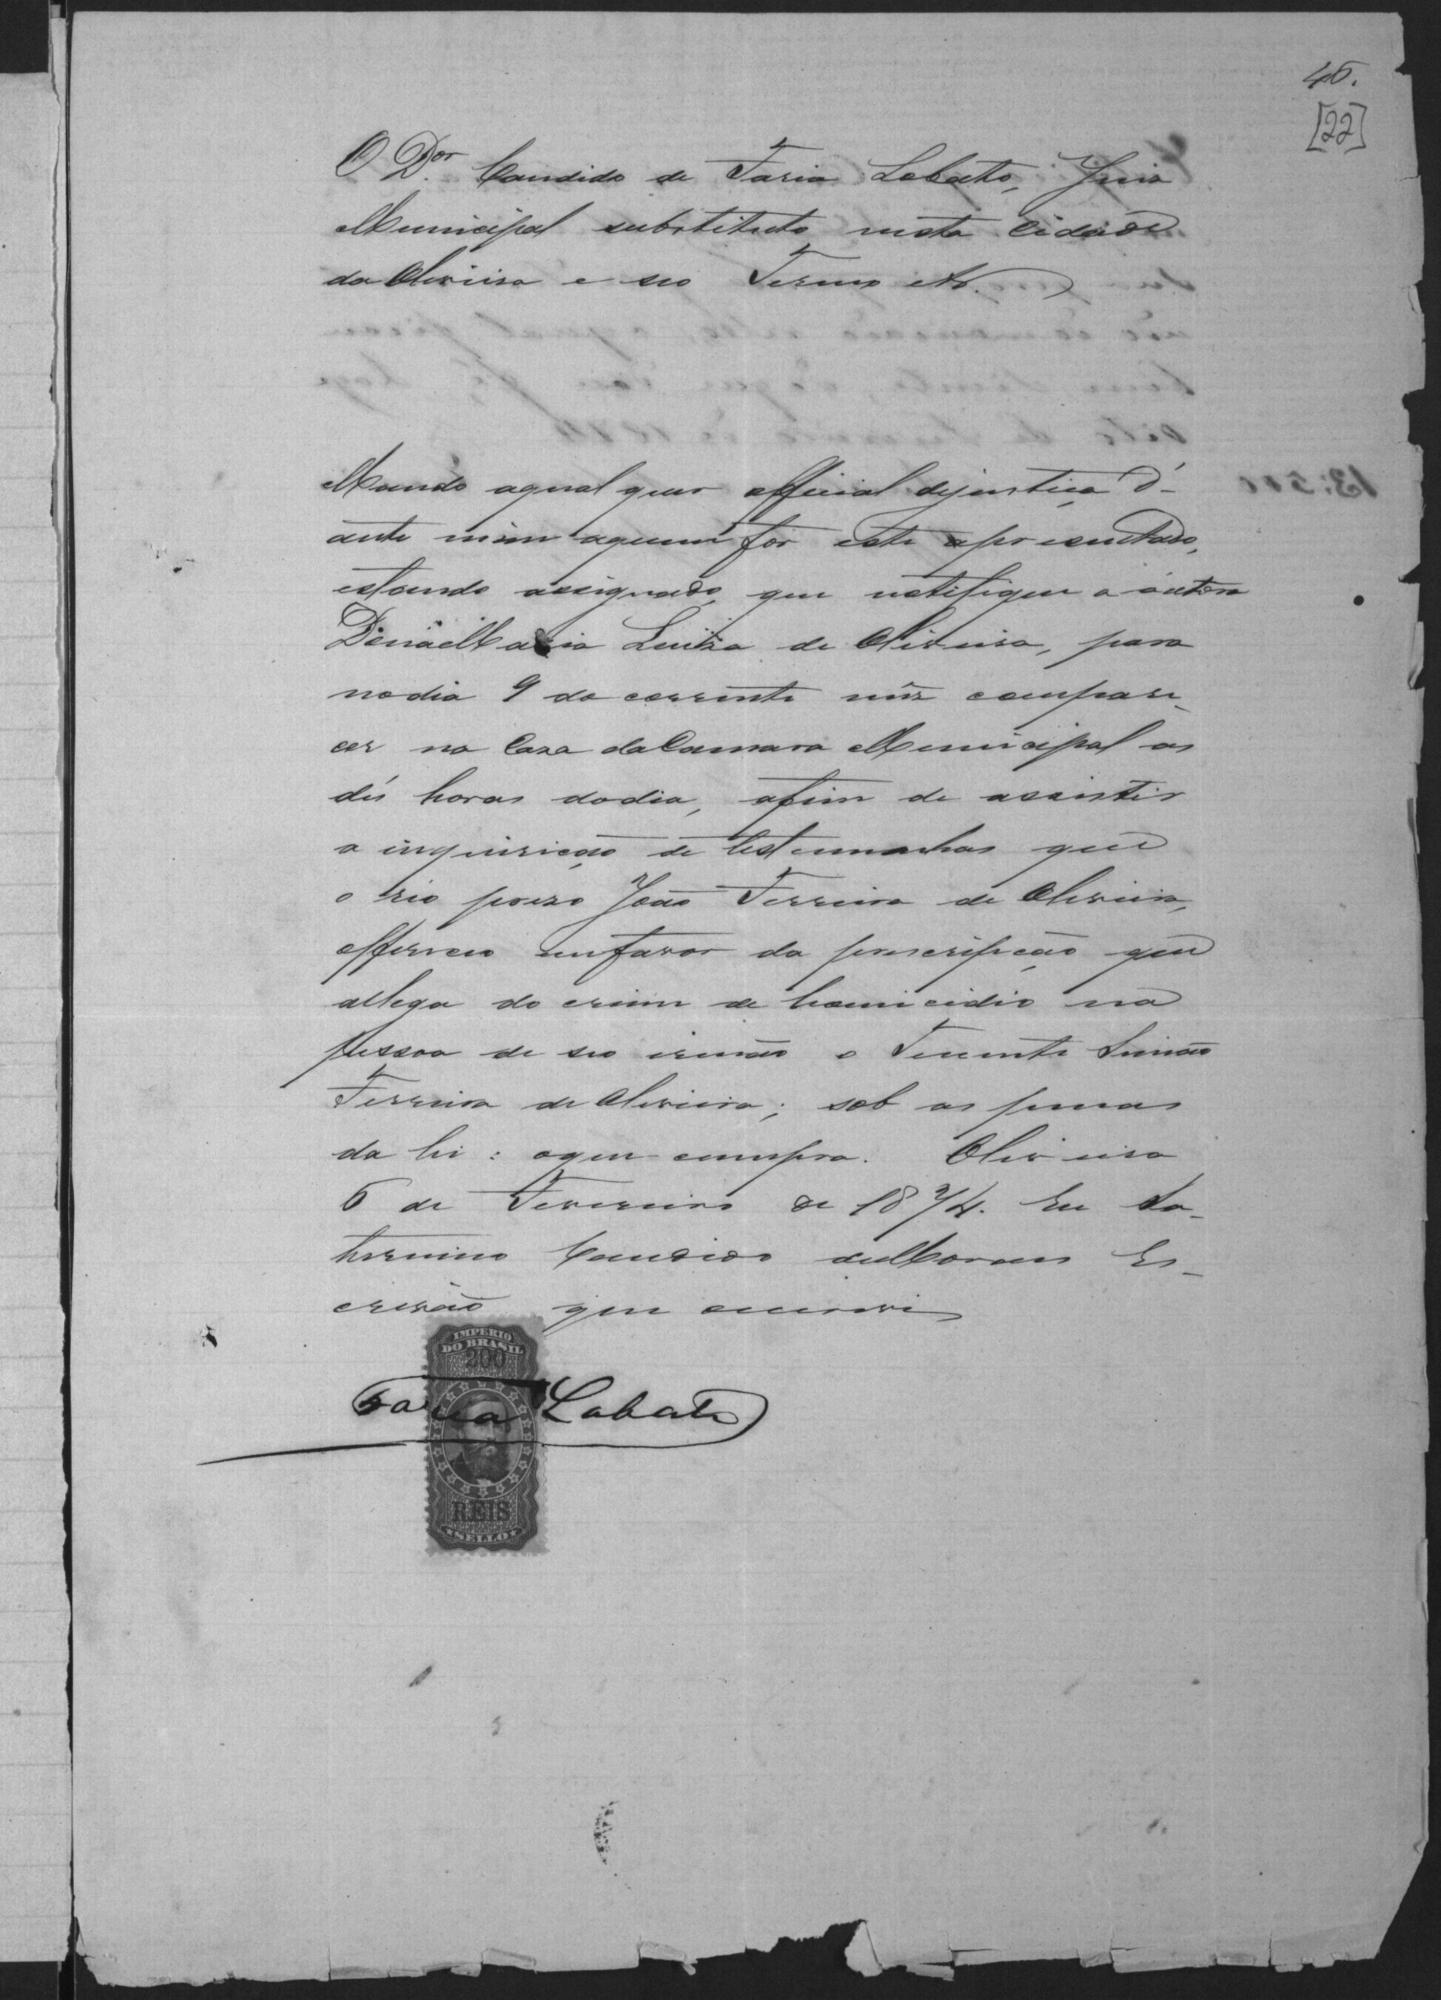 45.
[22]
O D.or Candido de Faria Lobato, Juis
Municipal substituto nesta Cidade
da Oliveira e seo Termo etc.
Mando aqual quer official dejustiça d'-
ante mim aquem for este apresentado,
estando assignado, que notifique a autora
Dona Maria Luiza de Oliveira, para
nodia 9 do corrente mês compare-
cer na Casa daCamara Municipal as
dés horas dodia, afim de assistir
a inquirição de testemunhas que
o reo preso João Ferreira de Oliveira,
offereceo emfavor da prescripção que
allega do crime de homicidio na
pessoa de seo irmão o Tenente Simão
Ferreira de Oliveira; sob as penas
da lei: oque cumpra. Oliveira
6 de Fevereiro de 1874. Eu Sa-
turnino Candido deMoraes Es-
crivão que escrevi
IMPERIO
DO BRASIL
200
Faria Lobato
REIS
SELLO